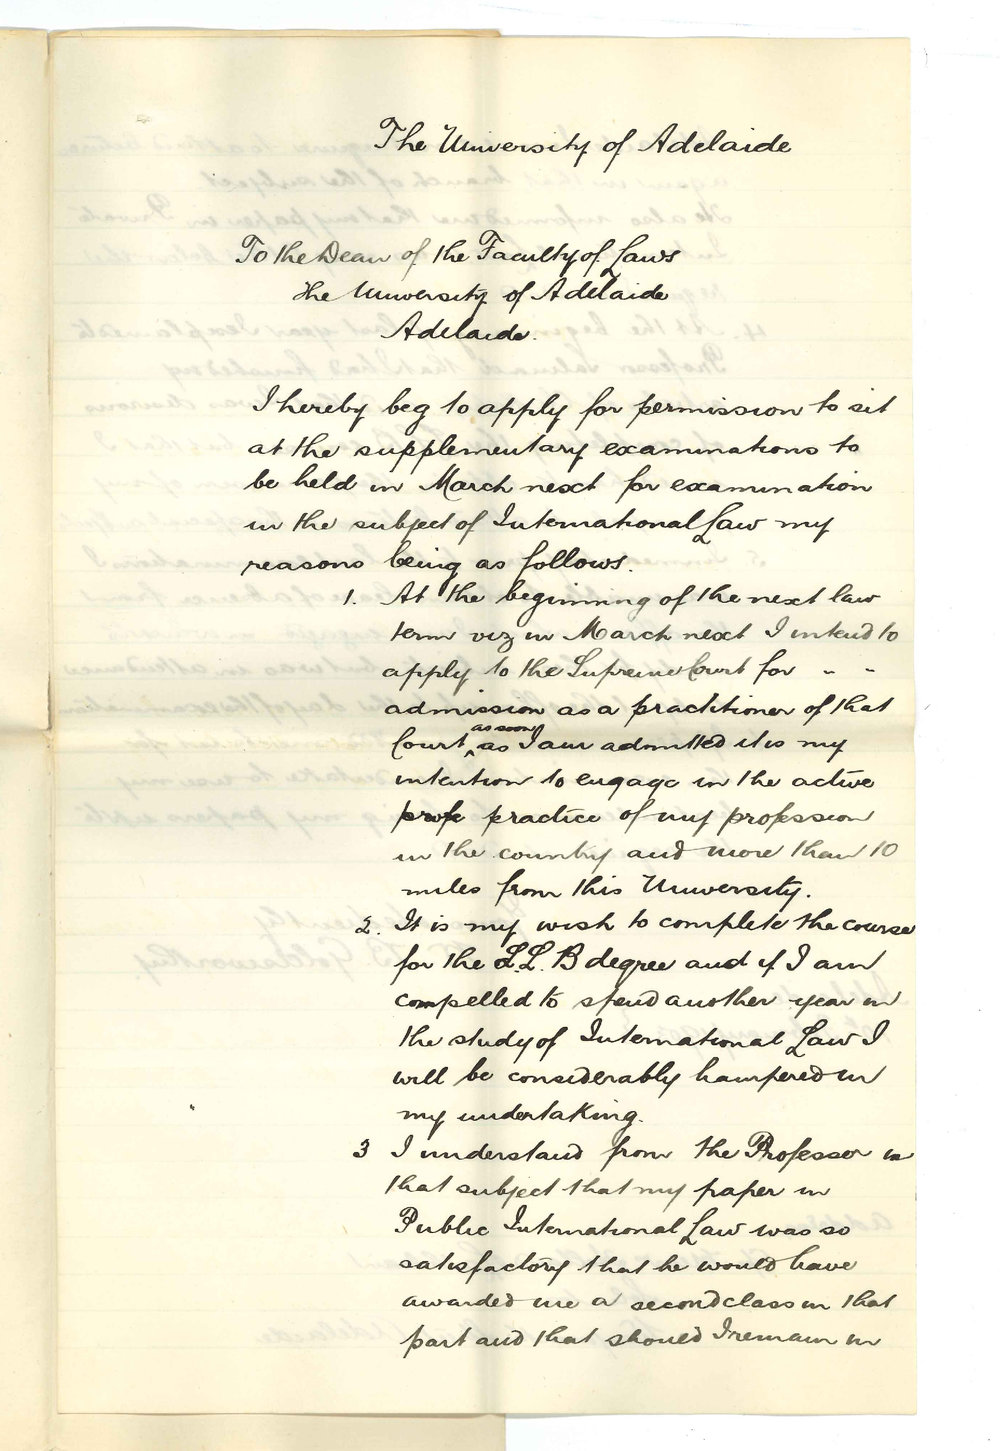 The University of Adelaide
To the Dean of the Faculty of Laws
The University of Adelaide
Adelaide.
I hereby beg to apply for permission to sit
at the supplementary examinations to
be held in March next for examination
in the subject of International Law my
reasons being as follows.
1. At the beginning of the next law
term viz in March next I intend to
apply to the Supreme Court for " "
admission as a practitioner of that
Court as soon as I am admitted it is my
intention to engage in the active
profe practice of my profession
in the country and more than 10
miles from this University.
2. It is my wish to complete the course
for the L.L.B degree and if I am
compelled to spend another year in
the study of International Law I
will be considerably hampered in
my undertaking.
3 I understand from the Professor in
that subject that my paper in
Public International Law was so
satisfactory that he would have
awarded me a second class in that
part and that should I remain in